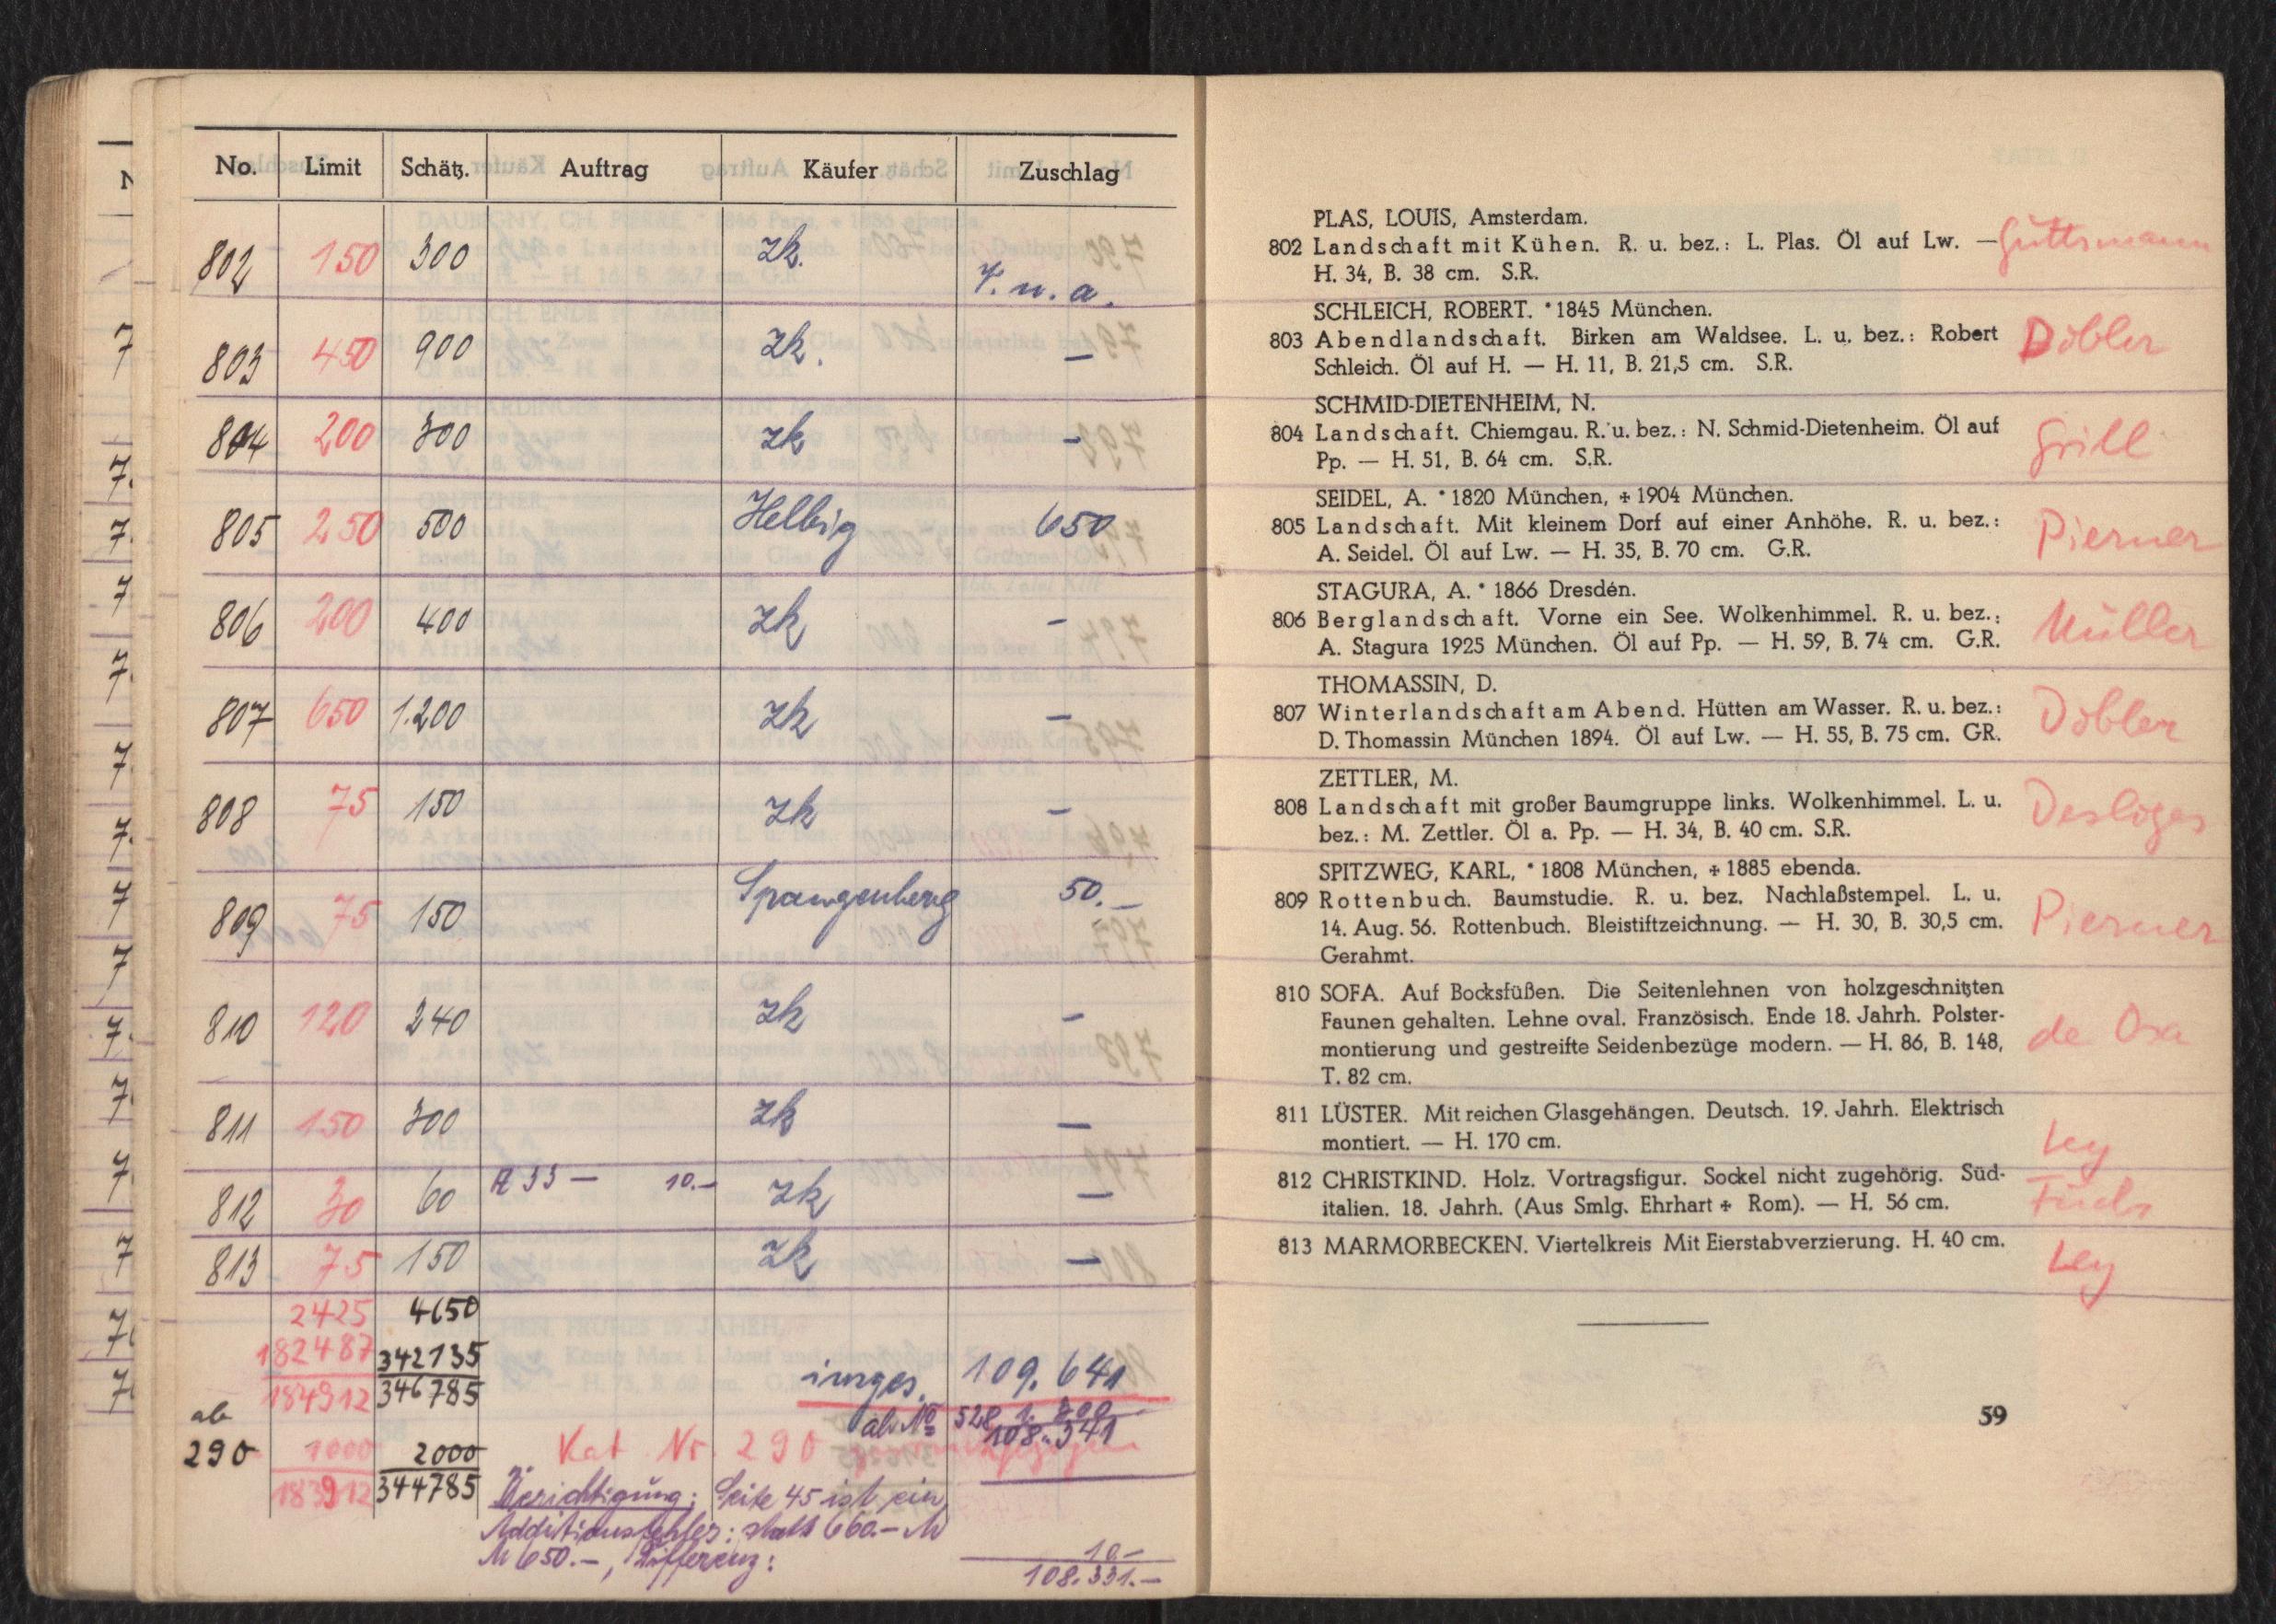 No. Limit Schätz. Auftrag Käufer Zuschlag
802 150 300 zk.
803 450 900 zk. –
804 200 300 zk –
805 250 500 Helbig 650
806 200 400 zk –
807 650 1.200 zk –
808 75 150 zk –
809 75 150 Spangenberg 50.–
810 120 240 zk –
811 150 300 zk –
812 30 60 A 33 – 10.– zk –
813 75 150 zk –
2425 4650
182487 342135 insges. 109.641
184912 346785 ab No 528
108.341
ab
290 1000 2000 Kat. Nr. 290
183912 344785 Berichtigung: Seite 45 ist ein
Additionsfehler: statt 660.– M
M 650.–, Differenz: 10.–
108.331.–
PLAS, LOUIS, Amsterdam.
802 Landschaft mit Kühen. R. u. bez.: L. Plas. Öl auf Lw. — Guttsmann
H. 34, B. 38 cm. S.R.
SCHLEICH, ROBERT. * 1845 München.
803 Abendlandschaft. Birken am Waldsee. L. u. bez.: Robert Döbler
Schleich. Öl auf H. — H. 11, B. 21,5 cm. S.R.
SCHMID-DIETENHEIM, N.
804 Landschaft. Chiemgau. R. u. bez.: N. Schmid-Dietenheim. Öl auf Grill
Pp. — H. 51, B. 64 cm. S.R.
SEIDEL, A. * 1820 München, + 1904 München.
805 Landschaft. Mit kleinem Dorf auf einer Anhöhe. R. u. bez.: Pierner
A. Seidel. Öl auf Lw. — H. 35, B. 70 cm. G.R.
STAGURA, A. * 1866 Dresdén.
806 Berglandschaft. Vorne ein See. Wolkenhimmel. R. u. bez.: Müller
A. Stagura 1925 München. Öl auf Pp. — H. 59, B. 74 cm. G.R.
THOMASSIN, D.
807 Winterlandschaft am Abend. Hütten am Wasser. R. u. bez.: Döbler
D. Thomassin München 1894. Öl auf Lw. — H. 55, B. 75 cm. GR.
ZETTLER, M.
808 Landschaft mit großer Baumgruppe links. Wolkenhimmel. L. u. Desloges
bez.: M. Zettler. Öl a. Pp. — H. 34, B. 40 cm. S.R.
SPITZWEG, KARL, * 1808 München, + 1885 ebenda.
809 Rottenbuch. Baumstudie. R. u. bez. Nachlaßstempel. L. u. Pierner
14. Aug. 56. Rottenbuch. Bleistiftzeichnung. — H. 30, B. 30,5 cm.
Gerahmt.
810 SOFA. Auf Bocksfüßen. Die Seitenlehnen von holzgeschnitzten
Faunen gehalten. Lehne oval. Französisch. Ende 18. Jahrh. Polster- de Osa
montierung und gestreifte Seidenbezüge modern. — H. 86, B. 148,
T. 82 cm.
811 LÜSTER. Mit reichen Glasgehängen. Deutsch. 19. Jahrh. Elektrisch
montiert. — H. 170 cm. Ley
812 CHRISTKIND. Holz. Vortragsfigur. Sockel nicht zugehörig. Süd- Fuchs
italien. 18. Jahrh. (Aus Smlg. Ehrhart + Rom). — H. 56 cm.
813 MARMORBECKEN. Viertelkreis Mit Eierstabverzierung. H. 40 cm. Ley
59